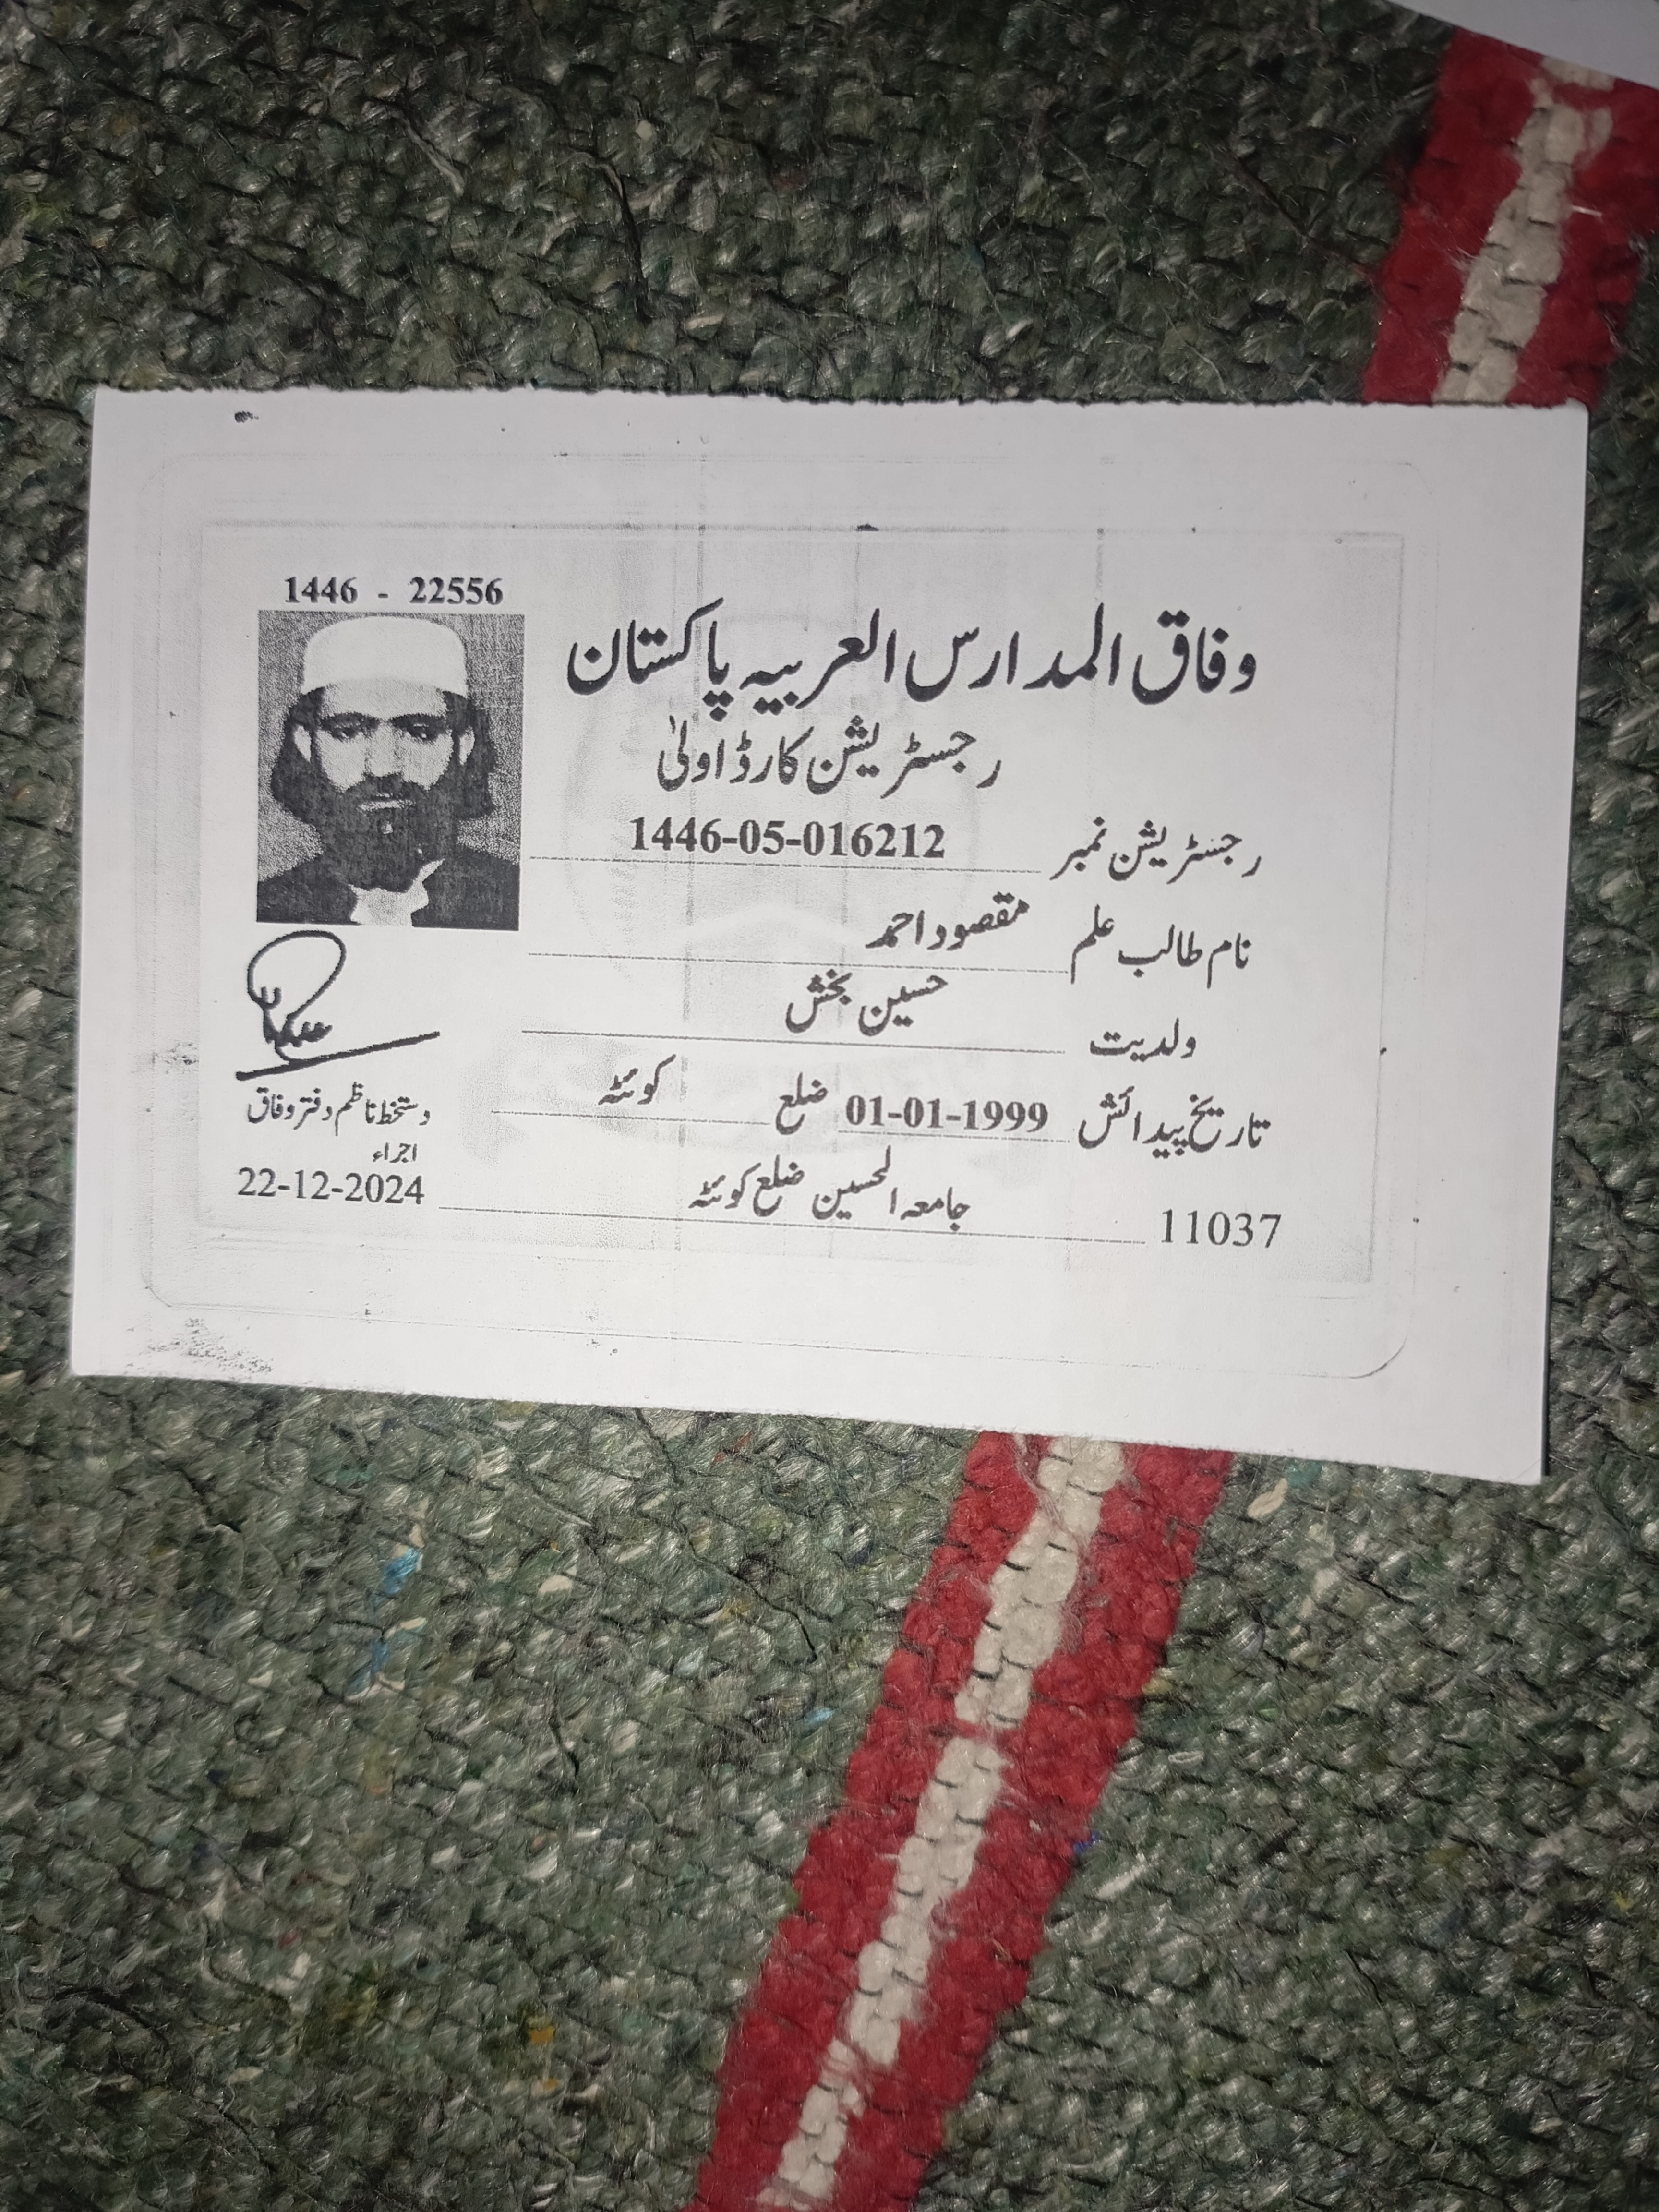 1446 - 22556
وفاق المدارس العربیہ پاکستان
رجسٹریشن کارڈ اولیٰ
رجسٹریشن نمبر 1446-05-016212
نام طالب علم مقصود احمد
ولدیت حسین بخش
تاریخ پیدائش 01-01-1999 ضلع کوئٹہ
11037 جامعہ الحسین ضلع کوئٹہ
دستخط ناظم دفتر وفاق
اجراء
22-12-2024